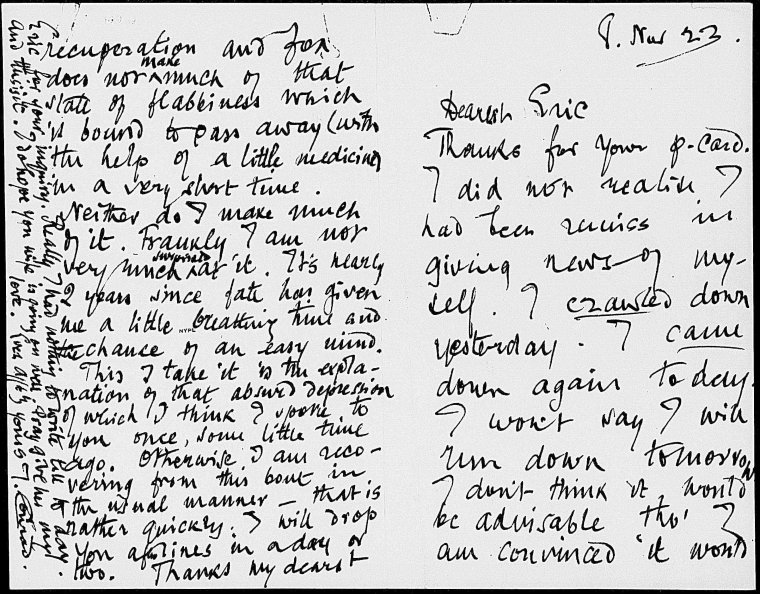 8. Nov 23.
Dearest Eric
Thanks for your p-card.
I did not realise I
had been remiss in
giving news of my-
self. I crawled down
yesterday. I came
down again to-day.
I won't say I will
run down tomorrow
I don't think it would
be advisable tho' I
am convinced it would
recuperation and fox
does not make much of that
state of flabbiness which
is bound to pass away (with
the help of a little medicine)
in a very short time.
Neither do I make much
of it. Frankly I am not
very much surprised at it. It's nearly
years since fate has given
me a little breathing time and
the chance of an easy mind.
This I take it is the expla-
nation of that absurd depression
of which I think I spoke to
you once, some little time
ago. Otherwise I am reco-
vering from this bout in
the usual manner — that is
rather quickly. I will drop
you a few lines in a day or
two. Thanks my dearest
Eric for your inquiry. Really I had nothing to write till to day.
and this is it. I do hope you wife is going on well. Pray give her my
love. Ever affly yours J. Conrad.